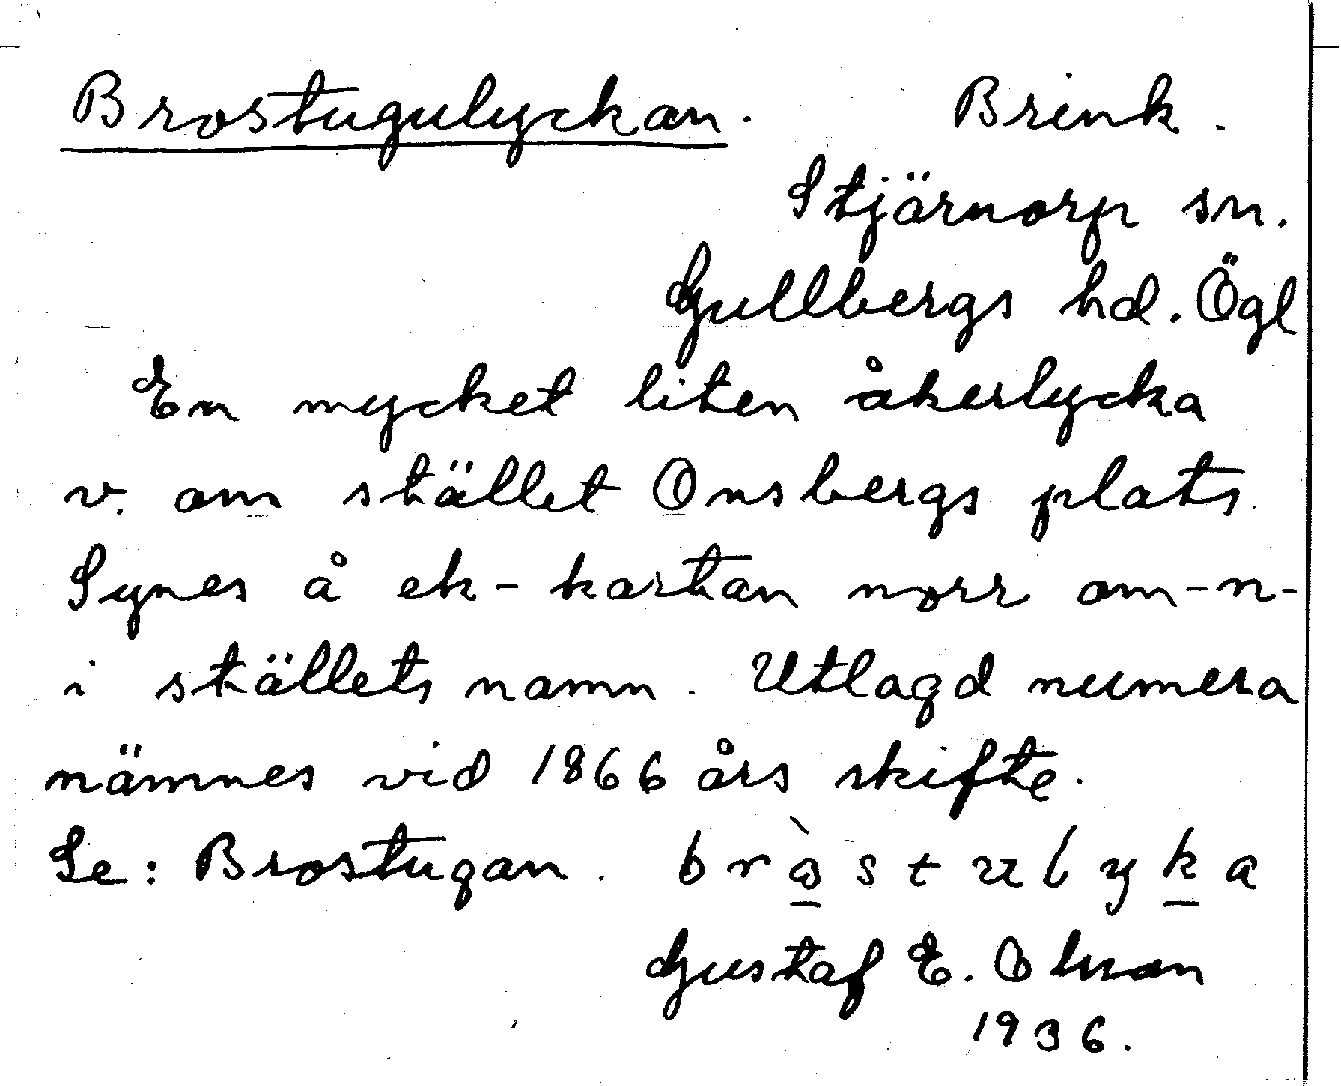 Brostugulyckan. Brink.
Stjärnorp sn.
Gullbergs hd. Ögl
En mycket liten åkerlycka
v. om stället Onsbergs plats.
Synes å ek-kartan norr om -n-
i ställets namn. Utlagd numera
nämnes vid 1866 års skifte.
Se: Brostugan.
Gustaf E. Olsson
1936.